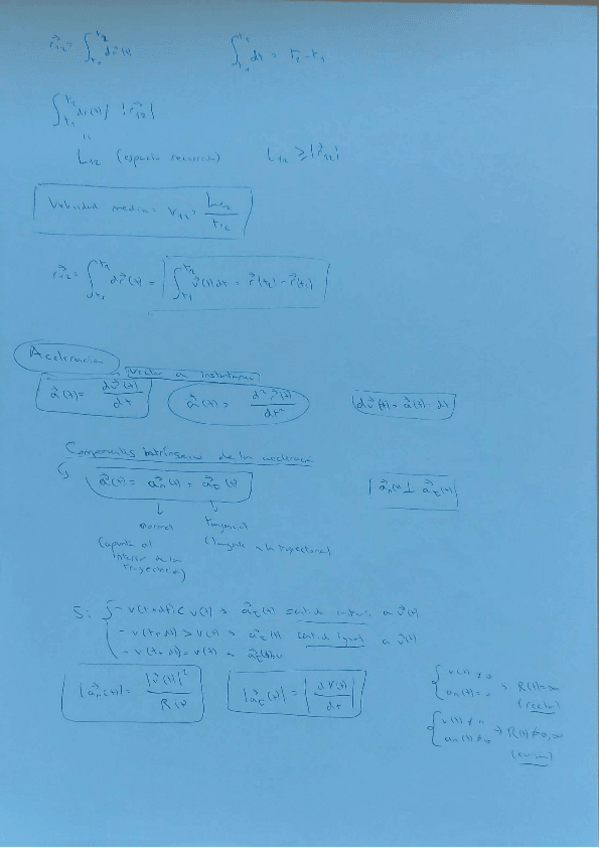 r⃗₁₂ = ∫_{t₁}^{t₂} dr⃗(t)    ∫_{t₁}^{t₂} dt = t₂ - t₁
∫_{t₁}^{t₂} dr(t) ≠ |r⃗₁₂|
"
L₁₂ (espacio recorrido)    L₁₂ ≥ |r⃗₁₂|
Velocidad media = V₁₂ = L₁₂/t₁₂
r⃗₁₂ = ∫_{t₁}^{t₂} dr⃗(t) = ∫_{t₁}^{t₂} v⃗(t) dt = r⃗(t₂) - r⃗(t₁)
Aceleración
vector a instantánea
a⃗(t) = dv⃗(t)/dt    a⃗(t) = d²r⃗(t)/dt²    dv⃗(t) = a⃗(t) · dt
Componentes intrínsecas de la aceleración
a⃗(t) = a⃗n(t) + a⃗t(t)    a⃗n(t) ⊥ a⃗t(t)
↓ ↓
normal    tangencial
(apunta al    (tangente a la trayectoria)
interior de la
trayectoria)
Si: { - v(t+dt) < v(t) → a⃗t(t) sentido contrario a v⃗(t)
- v(t+dt) > v(t) → a⃗t(t) sentido igual a v⃗(t)
- v(t+dt) = v(t) →
|a⃗n(t)| = |v⃗(t)|²/R(t)    |a⃗t(t)| = |dv(t)/dt|
{ v(t) ≠ 0
an(t) = 0 → R(t) = ∞
(recta)
{ v(t) ≠ 0
an(t) ≠ 0 → R(t) ≠ 0, ∞
(curva)